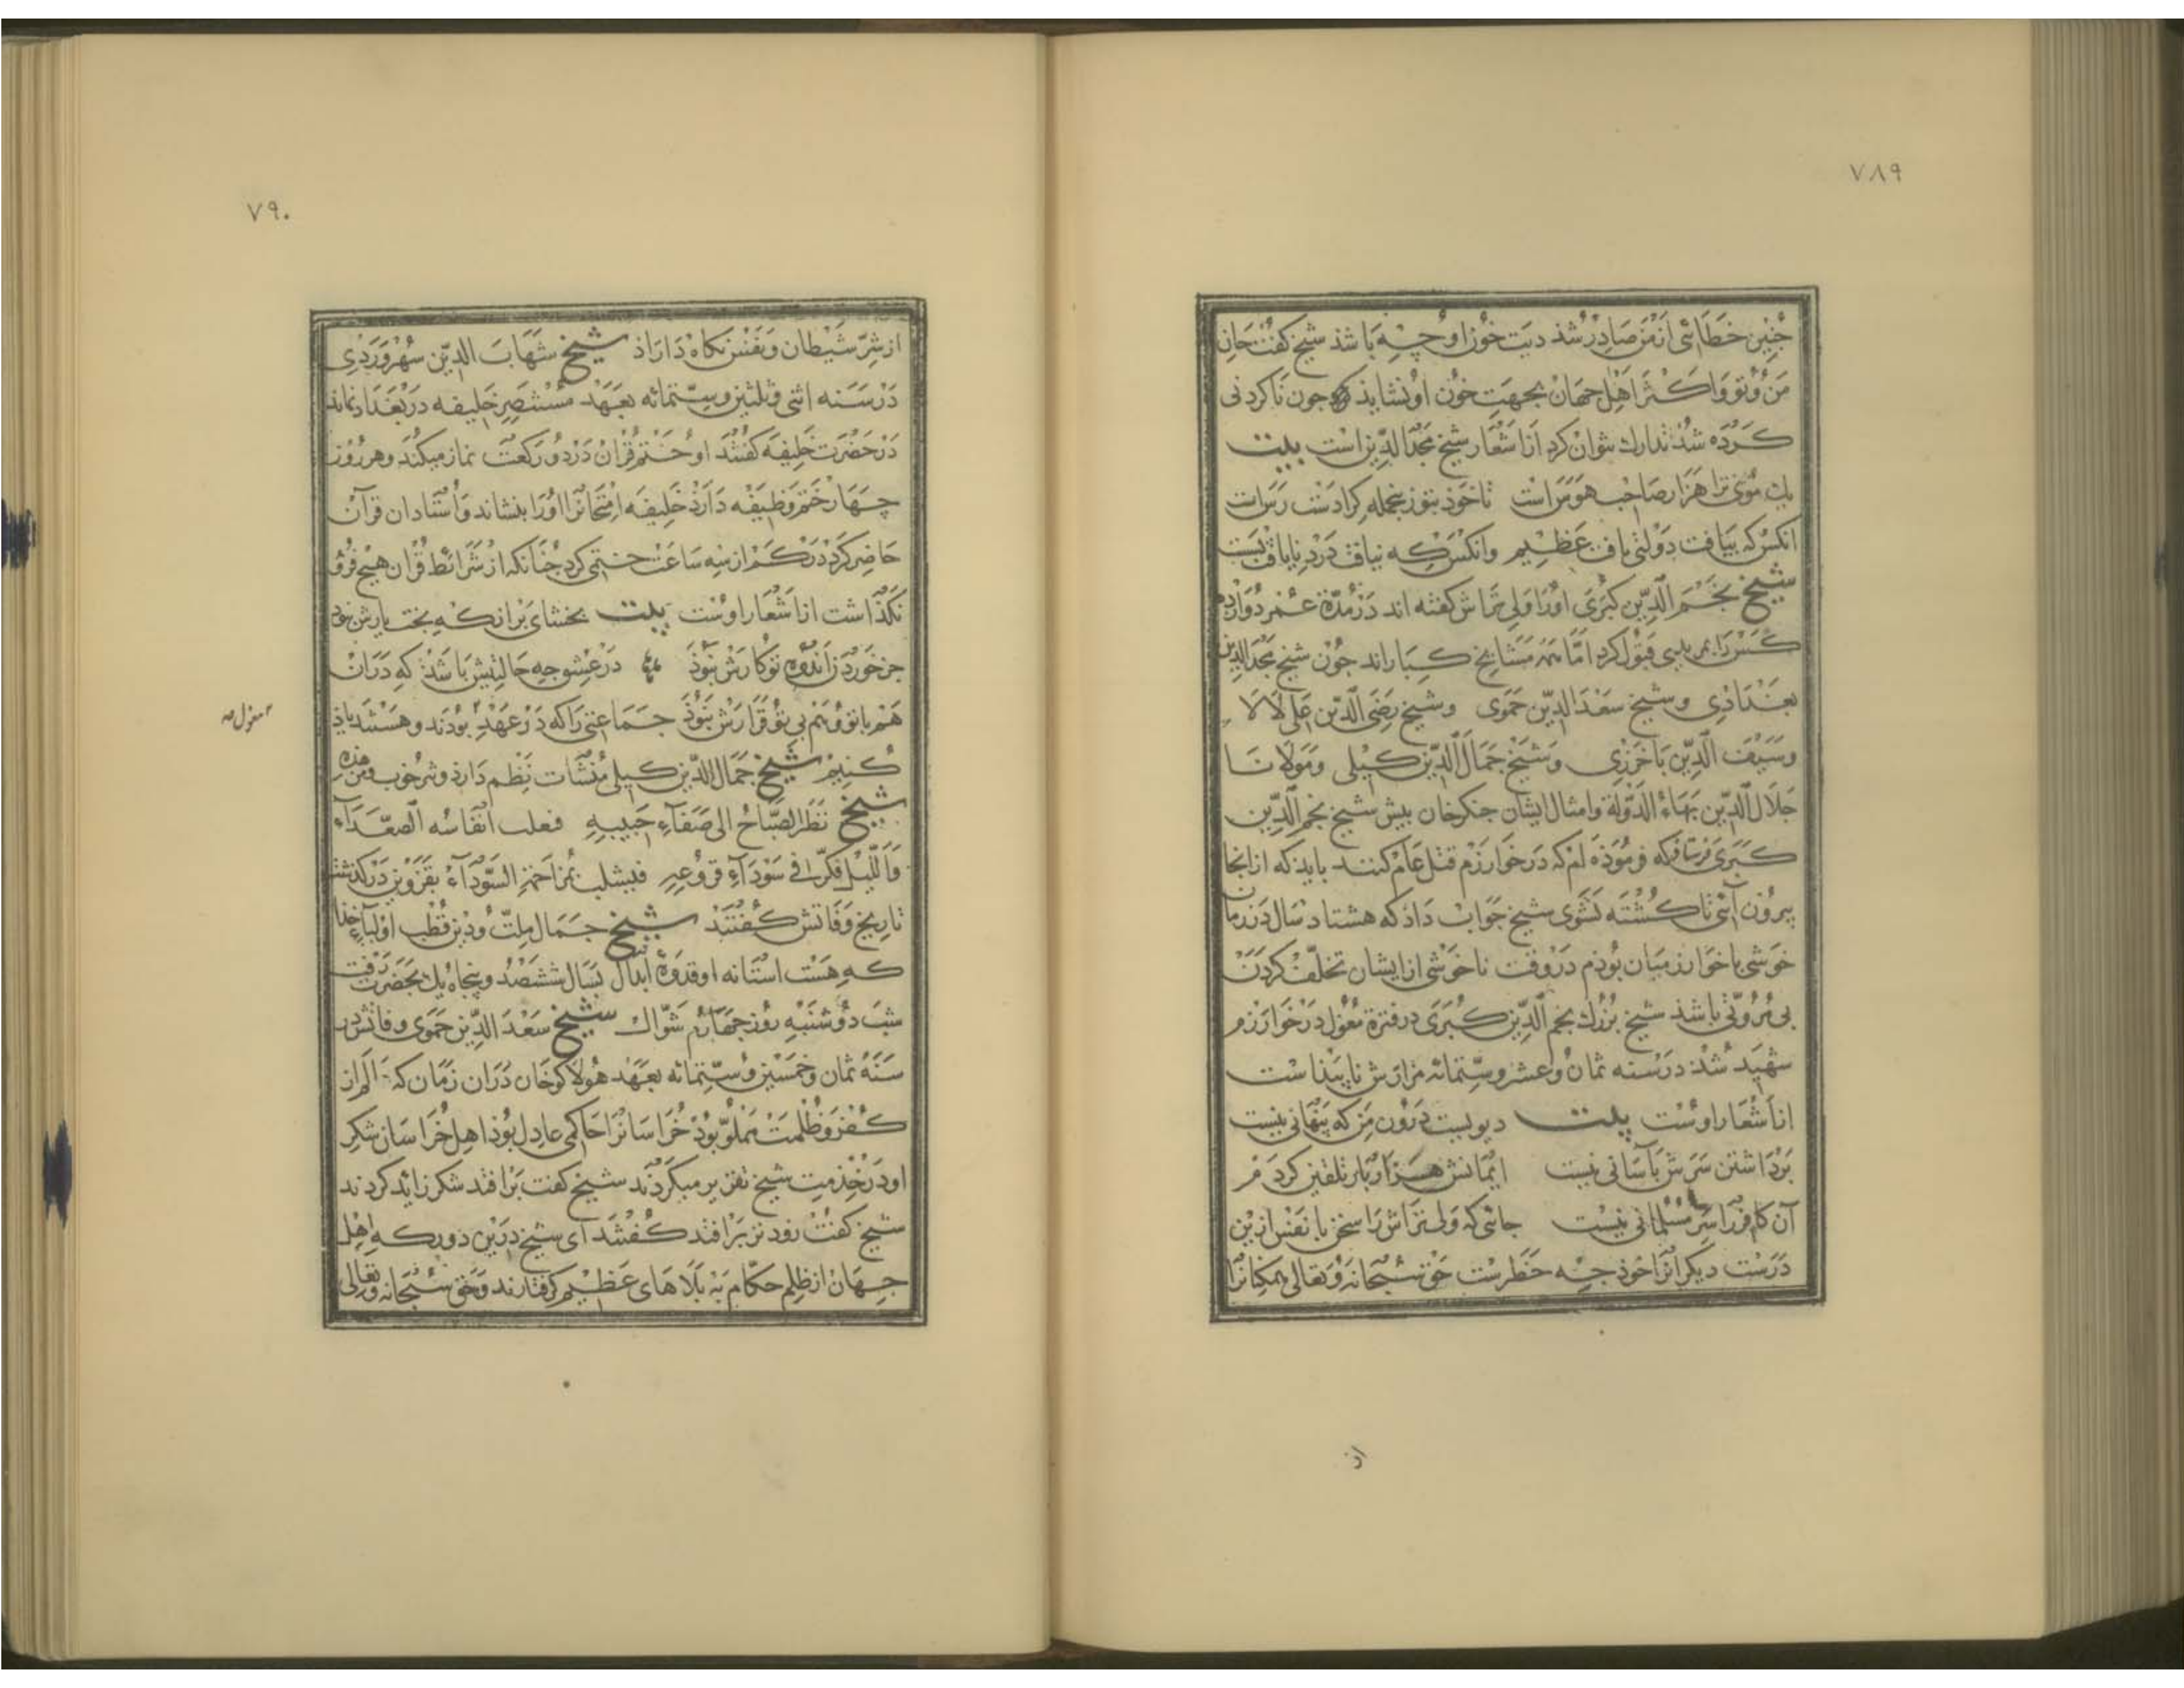 ٧٨٩
جنین خطائی از من صادر شذ دیت خون او چه باشد شیخ کفت جان
من و تو و اکثر اهل جهان بجهت خون او نشاید که جون ناکردنی
کرده شذ تدارك نتوان کرد از اشعار شیخ مجد الدین است بیت
یك موی ترا هزار صاحب هوس است تا خوذ بتو زین جمله کرا دست رس است
انکس که بیافت دولتی یافت عظیم وانکس که نیافت درد نایافت بس است
شیخ نجم الدین کبری او را ولی تراش کفته اند در مدة عمر دوازده
کس را بمریدی قبول کرد اما همه مشایخ کبار اند جون شیخ مجد الدین
بغدادی و شیخ سعد الدین حموی و شیخ رضی الدین علی لالا
و سیف الدین باخرزی و شیخ جمال الدین کیلی و مولانا
جلال الدین بهاء الدولة و امثال ایشان جنکزخان بیش شیخ نجم الدین
کبری فرستاذ که فرموذه ام که در خوارزم قتل عام کنند باید که از انجا
بیرون آئی تا کشته نشوی شیخ جواب داذ که هشتاد سال در زمان
خوشی با خوارزمیان بوذم در وقت ناخوشی از ایشان تخلف کردن
بی مروتی باشذ شیخ بزرك نجم الدین کبری در فترة مغول در خوارزم
شهید شذ در سنه ثمان و عشر و ستمائه مزارش نابیداست
از اشعار اوست بیت دیویست درون من که بنهانی نیست
برداشتن سرش بآسانی نیست ایمانش هزار بار تلقین کردم
آن کافر را سر مسلمانی نیست جائی که ولی تراش را سخن با نفس ازین
درست دیکرانرا خوذ چه خطرست حق سبحانه و تعالی همکنانرا
از
٧٩٠
از شر شیطان و نفس نکاه داراذ شیخ شهاب الدین سهروردی
در سنه اثنی و ثلثین و ستمائه بعهد مستنصر خلیفه در بغداد نماند
در حضرت خلیفه کفتند او ختم قران در دو رکعت نماز میکند و هر روز
چهار ختم وظیفه دارذ خلیفه امتحانرا او را بنشاند و استادان قرآن
حاضر کرد در کم از سه ساعت ختمی کرد جنانکه از شرائط قران هیچ فرو
نکذاشت از اشعار اوست بیت بخشای بر انکه بخت یارش نبوذ
جز خوردن اندوه تو کارش نبوذ در عشق چه حالتیش باشذ که دران
هم با تو و هم بی تو قرارش نبوذ جماعتی را که در عهد بودند و هستند یاذ
مغول صه
کنیم شیخ جمال الدین کیلی منشآت نظم دارذ و نثر خوب و من هذه
شیخ نظر الصباح الی صفآء جبینه فعلت انفاسه الصعدآء
واللیل فکر فی سودآء فروعه بقزوین درکذشت
تاریخ وفاتش کفتند شیخ جمال ملت و دین قطب اولیآء خذا
که هست استانه او قدوة ابدال بسال ششصد و بنجاه یك بحضرت رفت
شب دوشنبه روز جهارم شوال شیخ سعد الدین حموی وفاتش در
سنه ثمان و خمسین و ستمائه بعهد هولاکو خان دران زمان که عالم از
کفر و ظلمت مملو بوذ خراسانرا حاکمی عادل بوذ اهل خراسان شکر
او در خذمت شیخ تقریر میکردند شیخ کفت برافتد شکر زائد کردند
شیخ کفت زودتر برافتد کفتند ای شیخ درین دور که اهل
جهان از ظلم حکام به بلاهای عظیم کرفتارند و حق سبحانه و تعالی